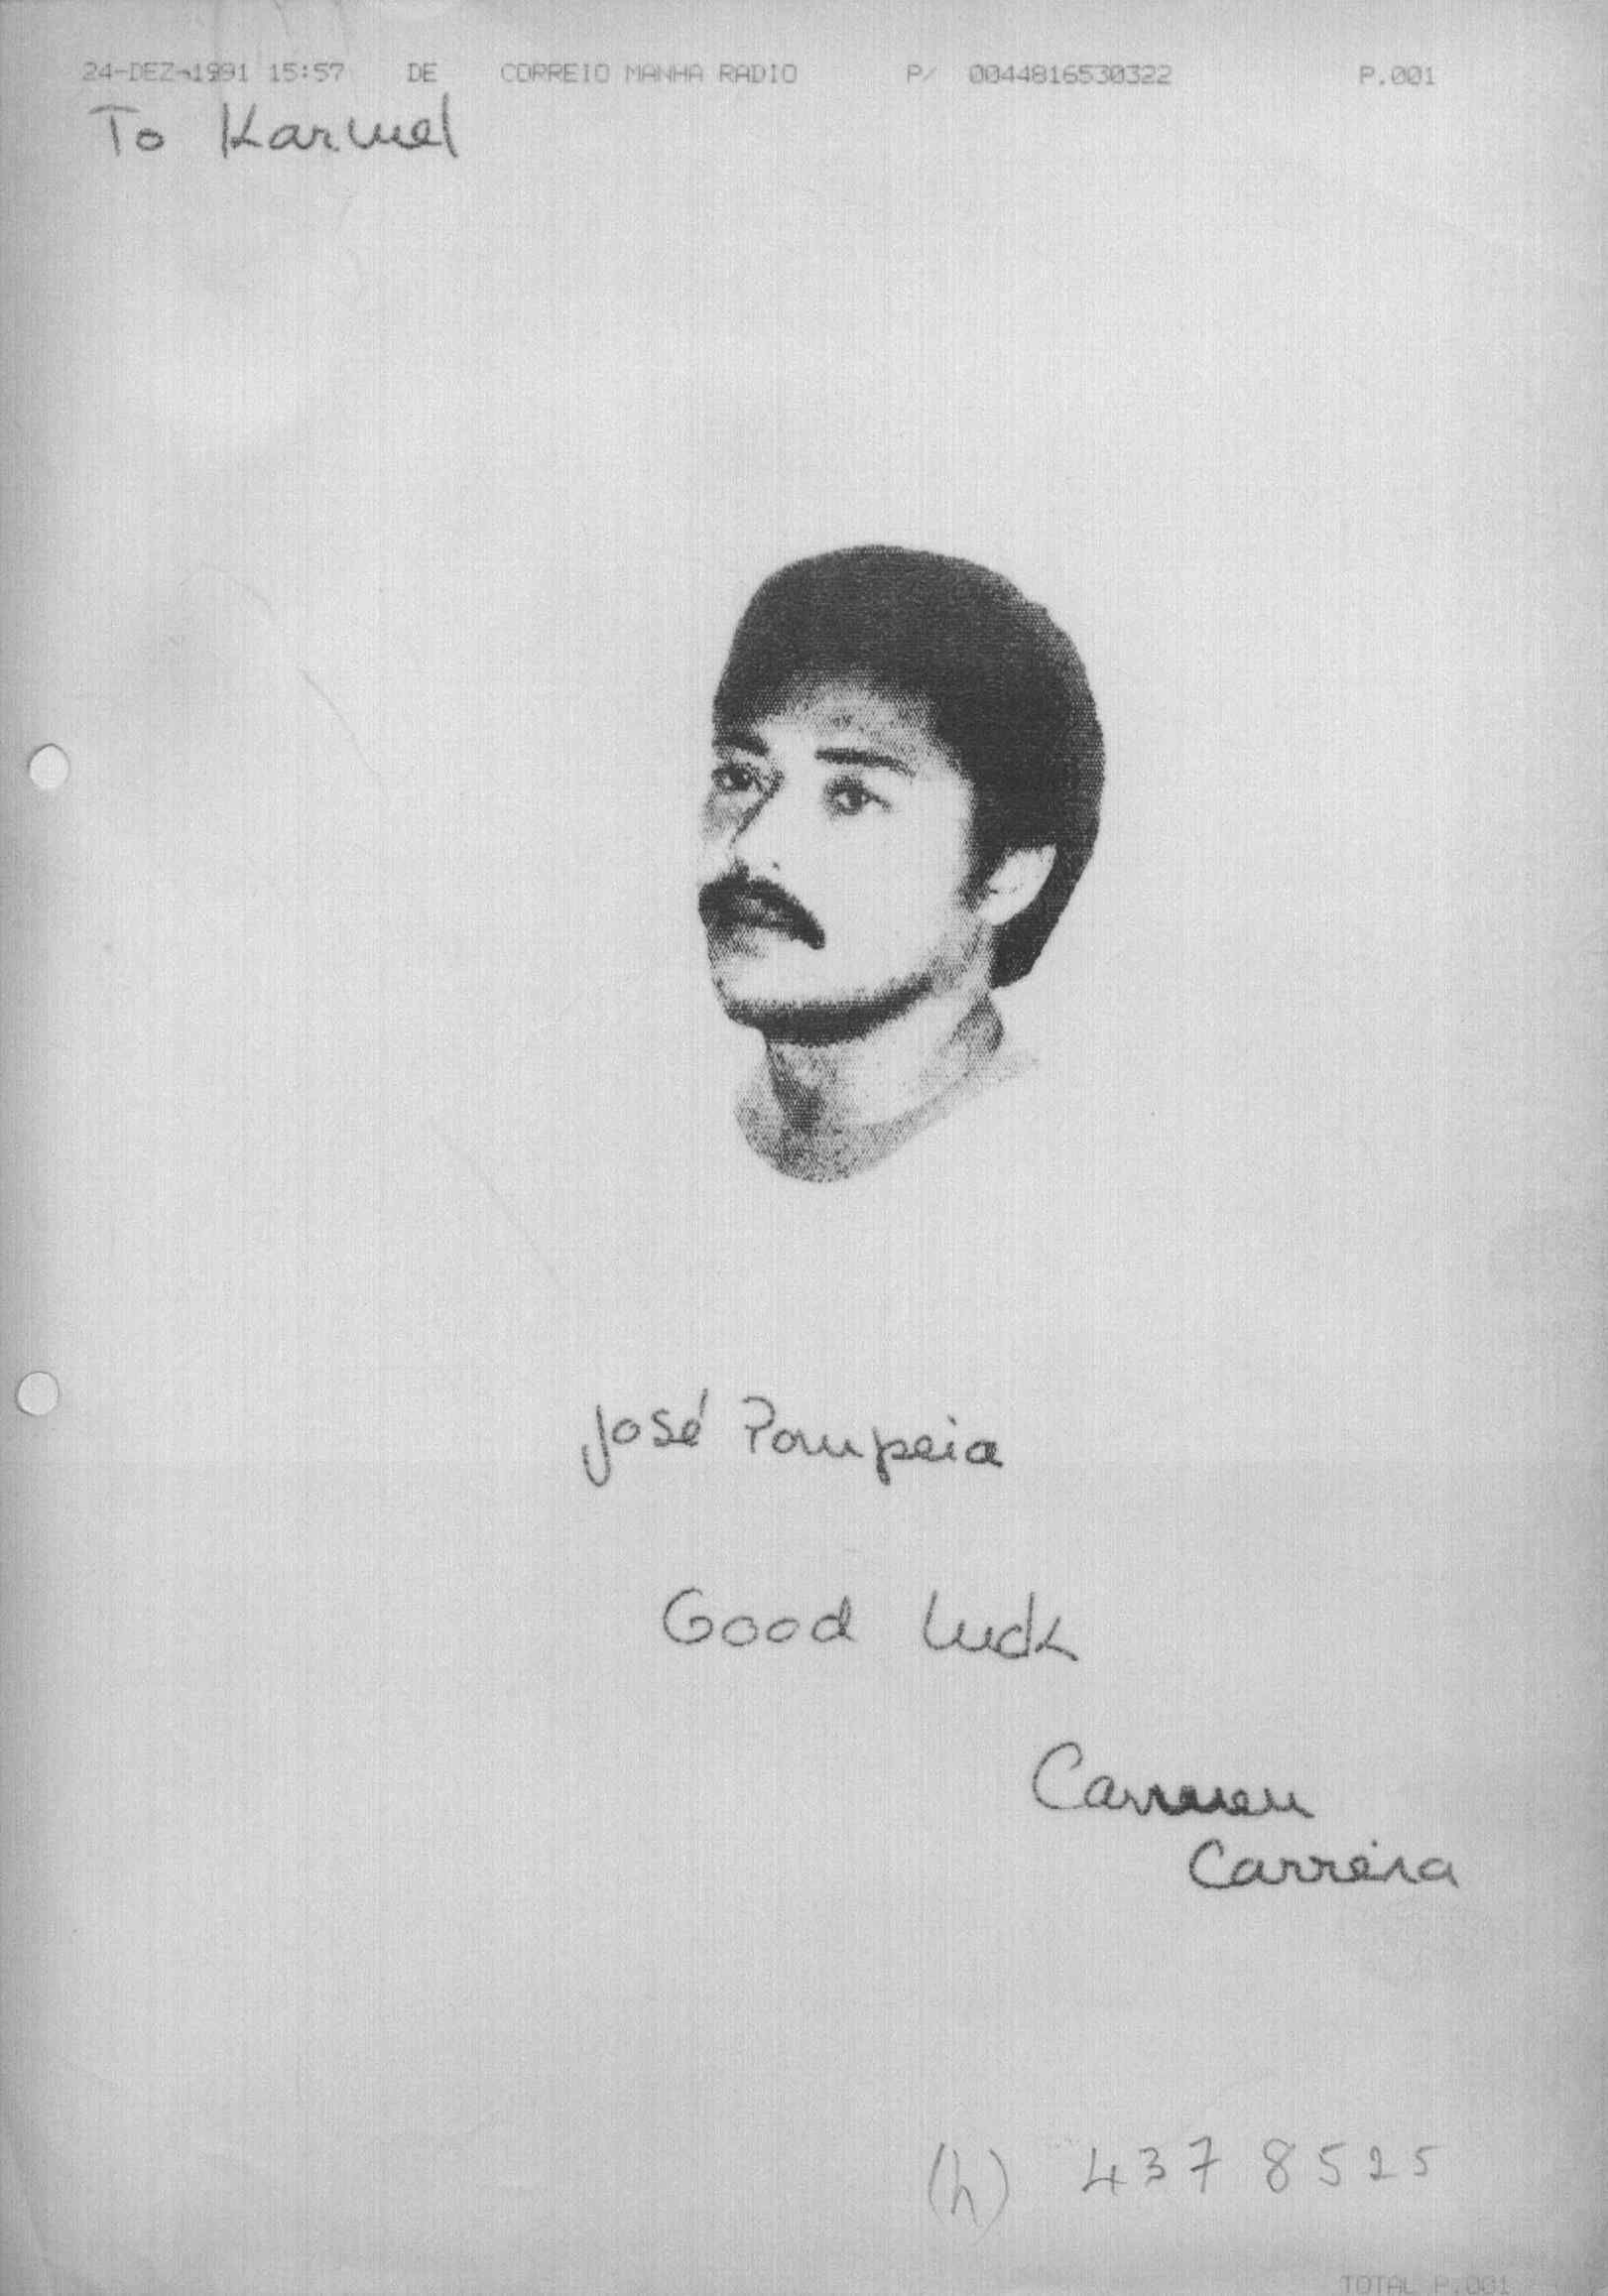 24-DEZ-1991 15:57 DE CORREIO MANHA RADIO P/ 0044816530322 P.001
To Karmel
José Pompeia
Good luck
Carmen
Carreira
(h) 437 8525
TOTAL P.001